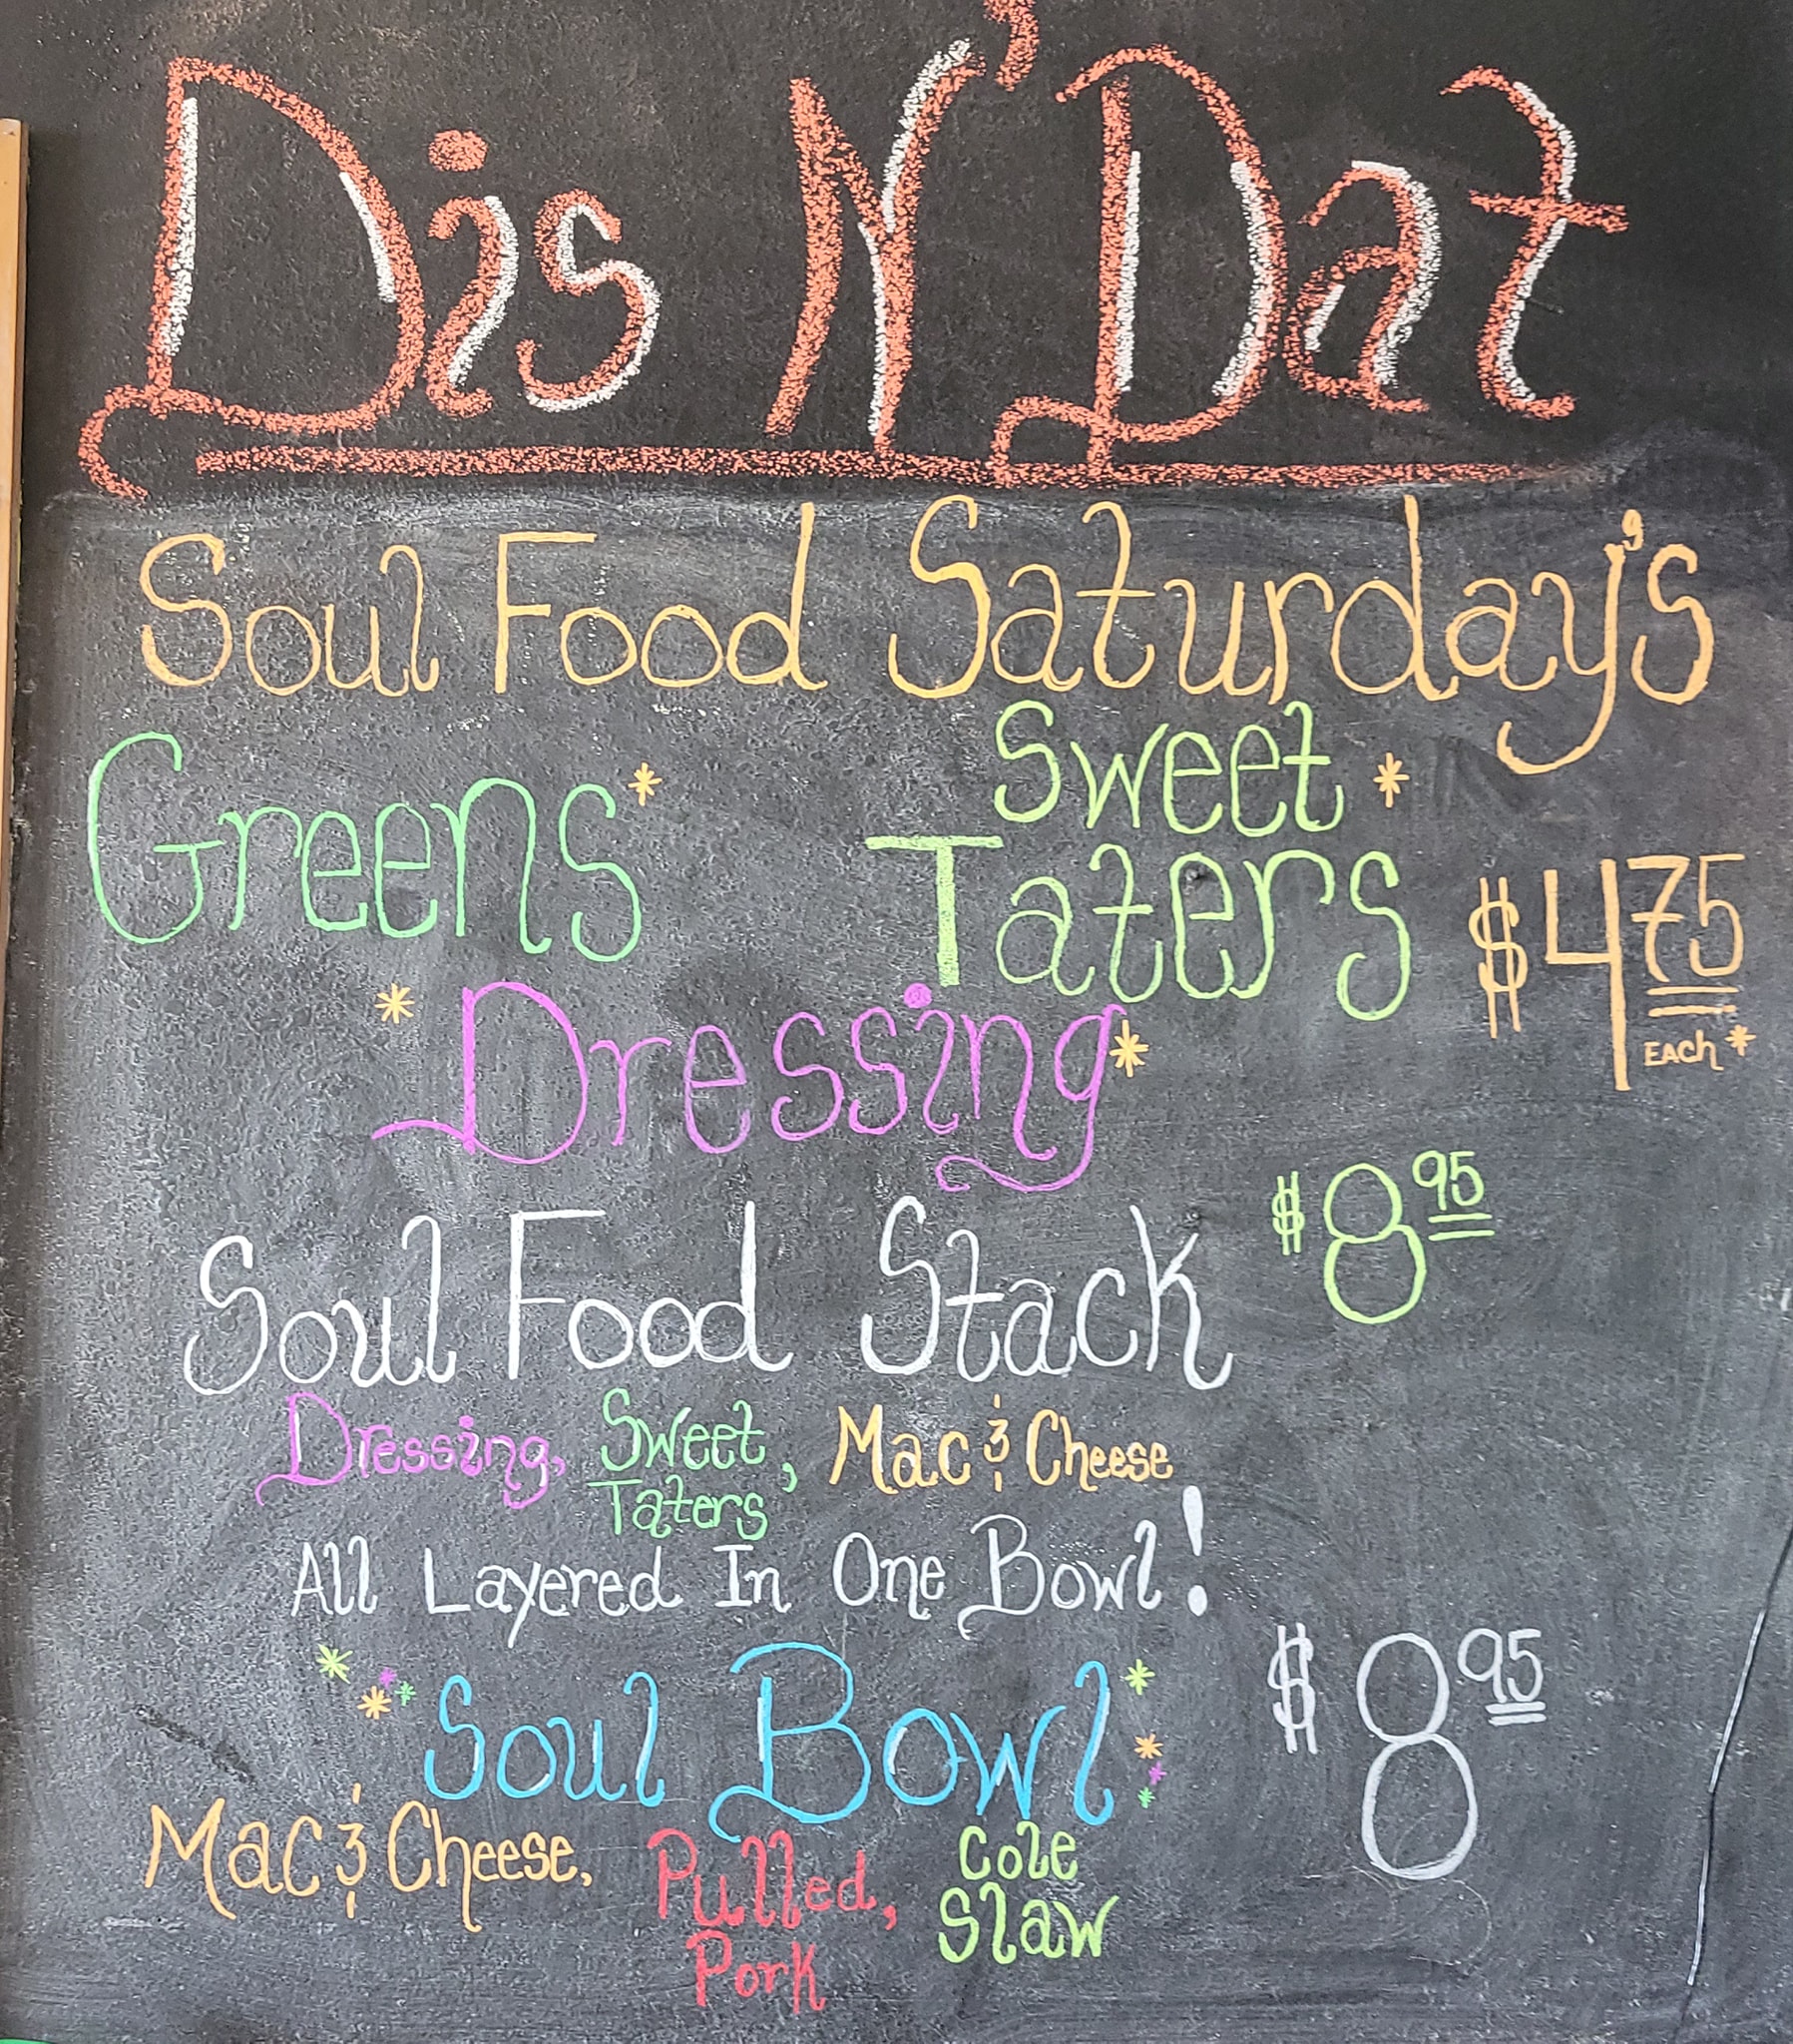 Dis N' Dat
Soul Food Saturday's
Greens*
Sweet *
Taters
$4 75
EACh *
* Dressing *
$8 95
Soul Food Stack
Dressing, Sweet Taters, Mac & Cheese
All Layered In One Bowl!
Soul Bowl
$8 95
Mac & Cheese, Pulled Pork, Cole Slaw